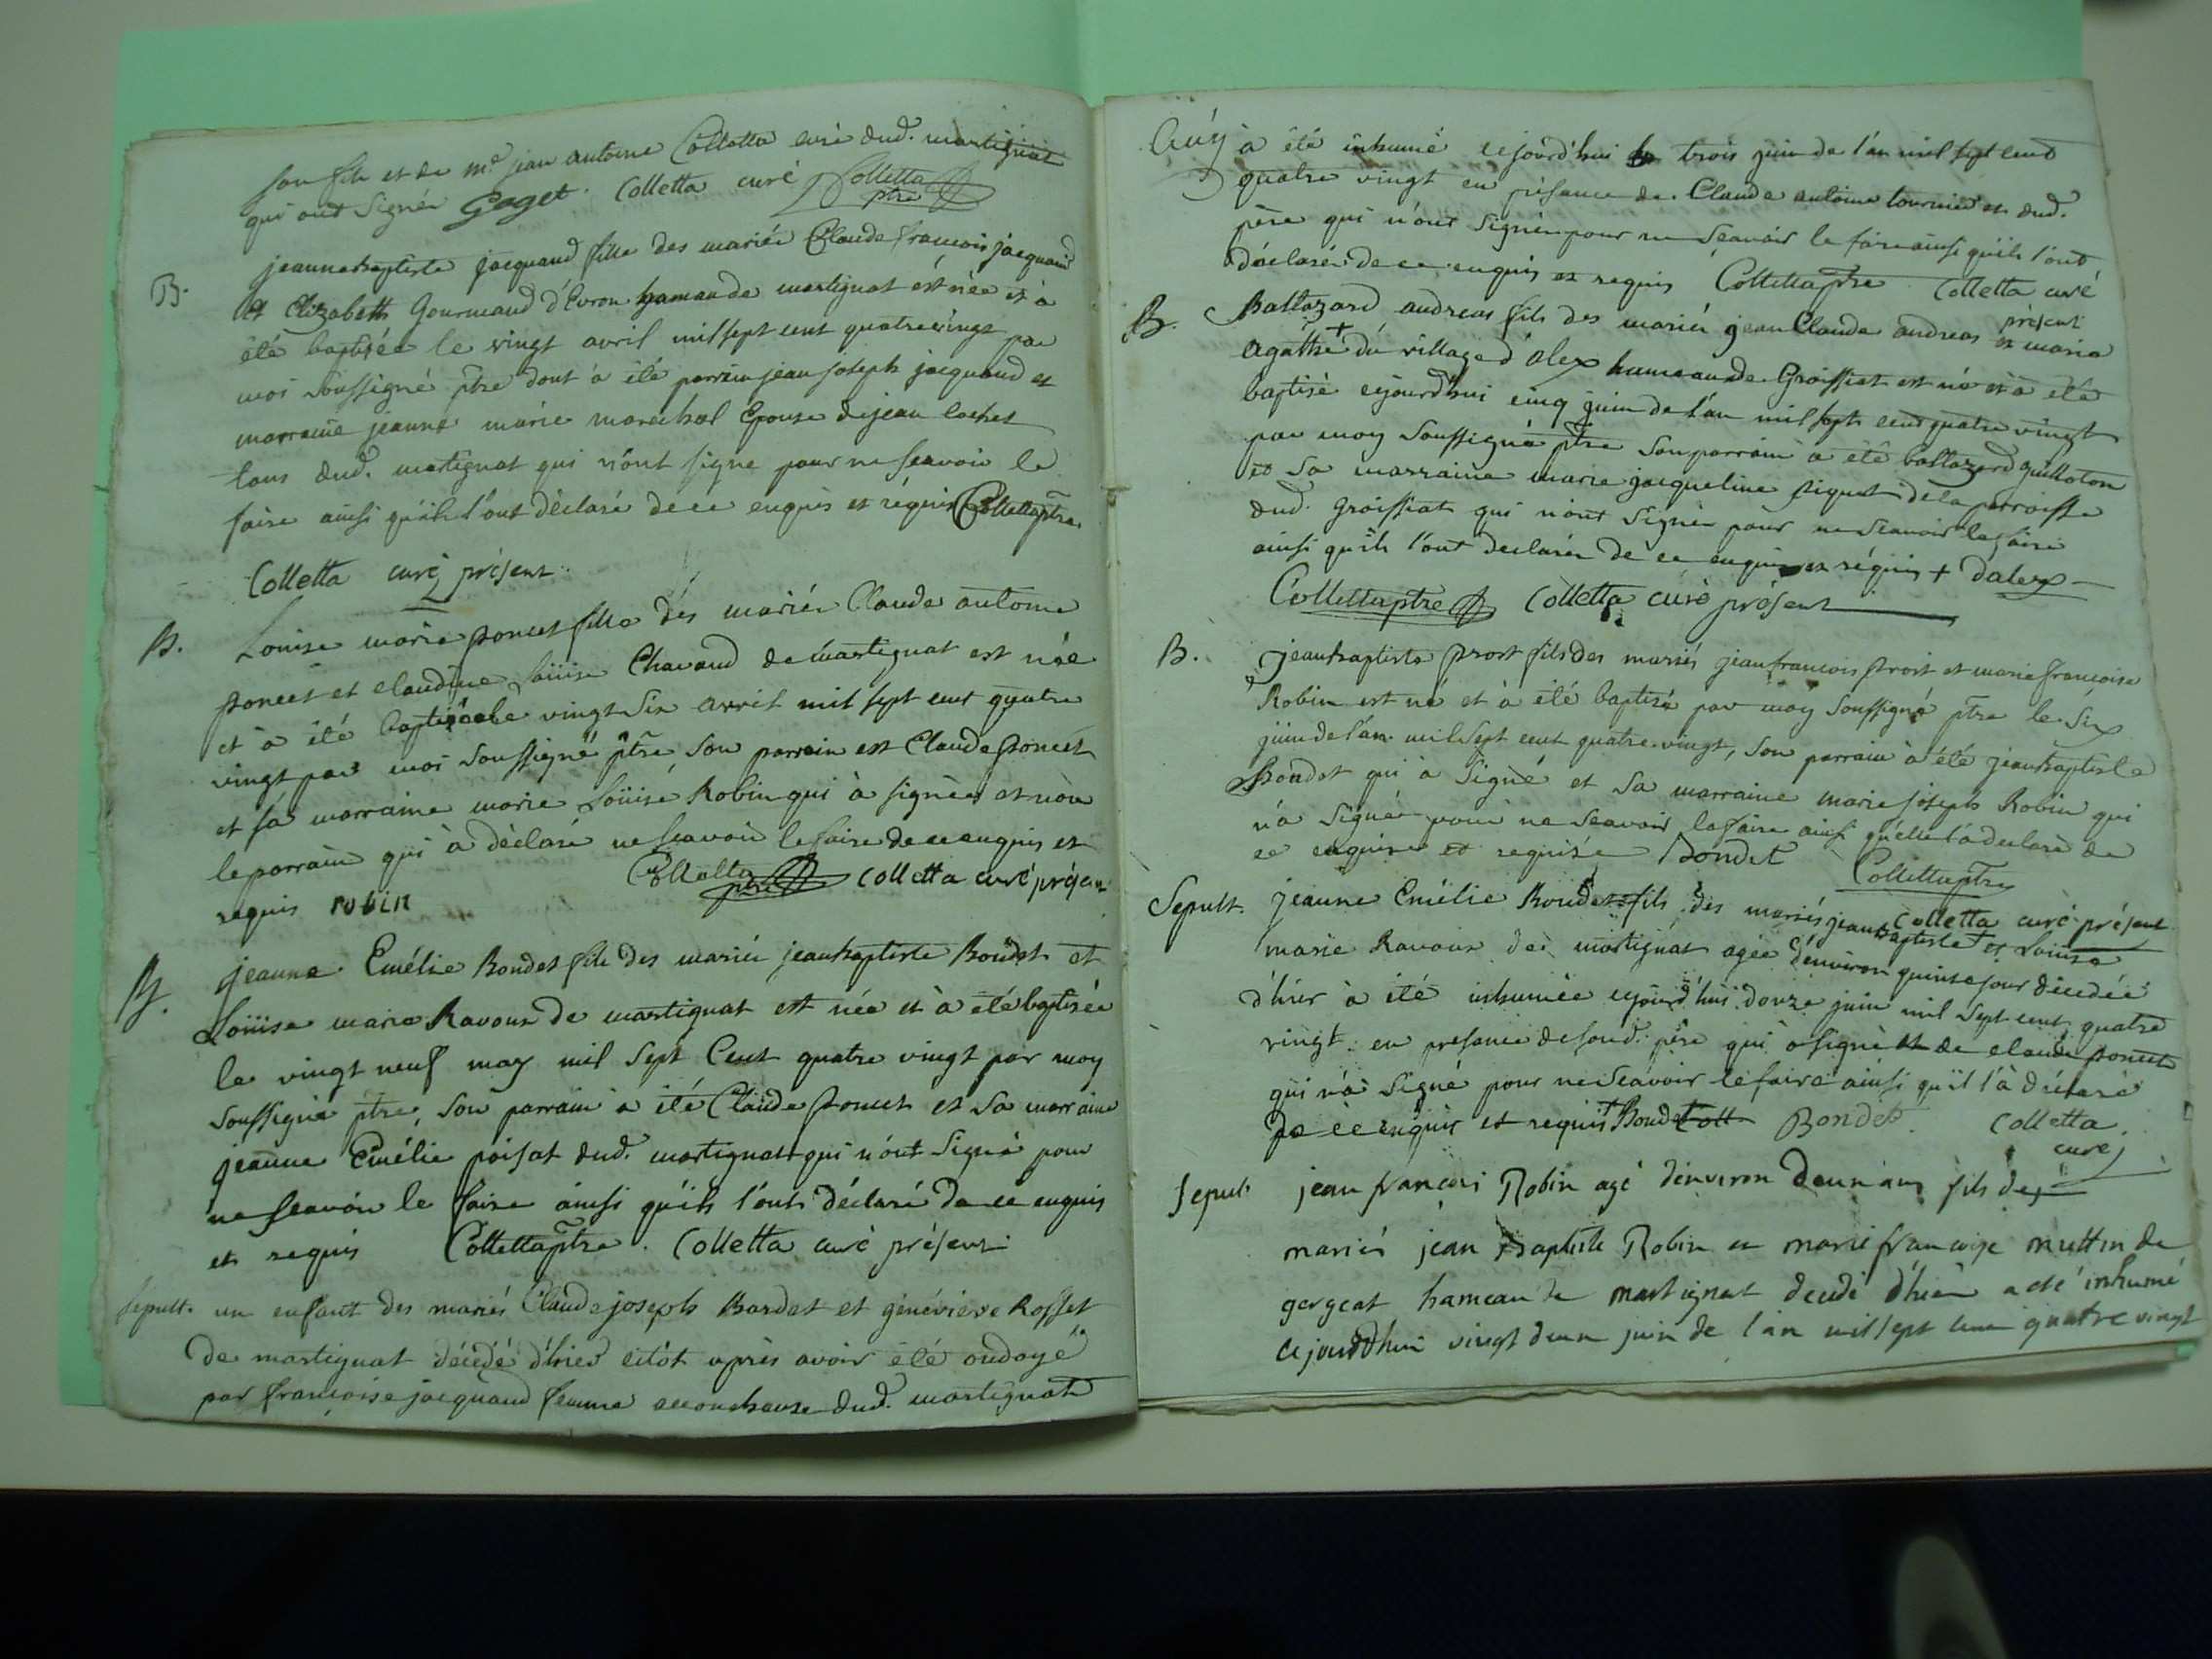 son fils et de mᵉ jean antoine Colletta curé dud. martignat
qui ont signés Goget Colletta curé Colletta ptre
B. jeannebaptiste jacquand fille des mariés Claude françois jacquand
et Elizabeth Gourmand d'Evron hamau de martignat est née et à
été baptisée le vingt avril mil sept cent quatrevingt par
moi soussigné ptre dont à été parrein jean joseph jacquand et
marraine jeanne marie marechal Epouse de jean lochet
tous dud. martignat qui n'ont signe pour ne sçavoir le
faire ainsi qu'ils l'ont déclaré de ce enquis et réquis Collettaptre
Colletta curé présent
B. Louise marie poncet fille dés mariés Claude antoine
poncet et claudine Loüise Chavand de martignat est née
et à été baptisée le vingt six avril mil sept cent quatre
vingt par moi soussigné ptre, son parrein est Claude poncet
et sa marraine marie Loüise Robin qui à signée et non
le parrain qui à déclaré ne sçavoir le faire de ce enquis et
requis robin Colletta ptre Colletta curé présent
B. jeanne Emélie Bondet fille des mariés jeanbaptiste Bondet et
Loüise marie Ravoux de martignat est née et à été baptisée
le vingt neuf may mil sept Cent quatre vingt par moy
soussigné ptre, son parrain à été Claude poncet et sa marraine
jeanne Emélie poisat dud. martignat qui n'ont signé pour
ne sçavoir le faire ainsi qu'ils l'ont déclaré de ce enquis
et requis Collettaptre. Colletta curé présent
sepult. un enfant des mariés Claude joseph Bardet et généviève Rosset
de martignat décedé d'hier sitôt après avoir été ondoyé
par françoise jacquand femme accoucheuse dud. martignat
à été inhumé cejourd'hui trois juin de l'an mil sept cent
quatre vingt en présance de Claude antoine tournier et dud.
père qui n'ont signés pour ne sçavoir le faire ainsi qu'ils l'ont
déclarés de ce enquis et requis Collettaptre Colletta curé
présent
B. Baltazard andreas fils des mariés jean Claude andreas et marie
agathe + du village d'alex hameau de Groissiat est né et à été
baptisé cejourd'hui cinq juin de l'an mil sept cent quatre vingt
par moy soussigné ptre son parrain à été baltazard guilloton
et sa marraine marie jacqueline piquet de la parroisse
dud. Groissiat qui n'ont signés pour ne sçavoir le faire
ainsi qu'ils l'ont declarés de ce enquis et réquis + dalex
Collettaptre Colletta curé présent
B. jeanbaptiste prost fils des mariés jeanfrancois prost et marie françoise
Robin est né et à été baptisé par moy soussigné ptre le six
juin de l'an mil sept cent quatre-vingt, son parrain à été jeanbaptiste
Bondet qui à signé et sa marraine marie joseph Robin qui
n'a signée pour ne sçavoir le faire ainsi qu'elle l'a declaré de
ce enquise et requise Bondet Collettaptre
Colletta curé présent
Sepult. jeanne Emélie Bondet fils des mariés jeanbaptiste et Louise
marie Ravoux de martignat agée d'environ quinse jour décedée
d'hier à été inhumée cejourd'hui douze juin mil sept cent quatre
vingt en presance de sond. père qui à signé et de claude poncet
qui n'à signé pour ne sçavoir le faire ainsi qu'il l'à déclaré
de ce enquis et requis Bondet Colletta
curé
sepult jean françois Robin agé d'environ deux ans fils des
mariés jean Baptiste Robin et marie françoise muttin de
gergeat hameau de martignat decedé d'hier a eté inhumé
cejourd'hui vingt deux juin de l'an mil sept cent quatre vingt